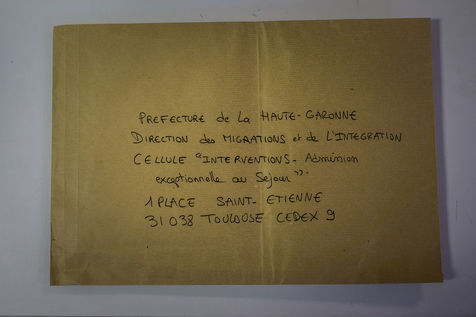 PREFECTURE de La HAUTE-GARONNE
DIRECTION des MIGRATIONS et de L'INTEGRATION
CELLULE "INTERVENTIONS - Admission
exceptionnelle au Séjour".
1 PLACE SAINT-ETIENNE
31038 TOULOUSE CEDEX 9